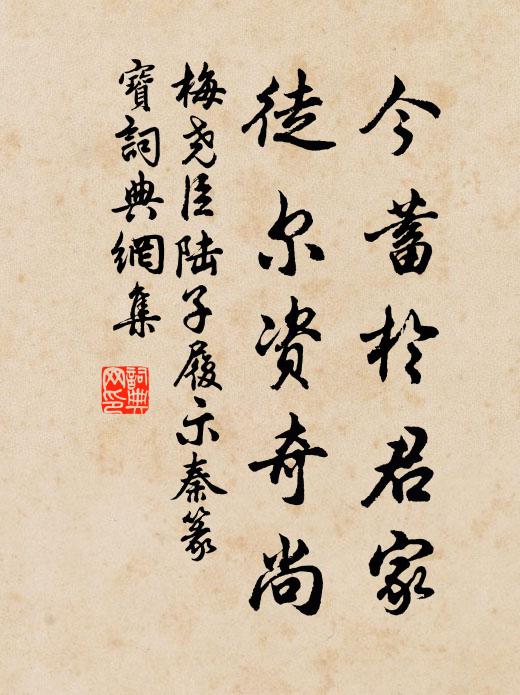 今蓄於君家
徒尔资奇尚
梅尧臣陆子履示秦篆
寶詞典網集
詞典
网印